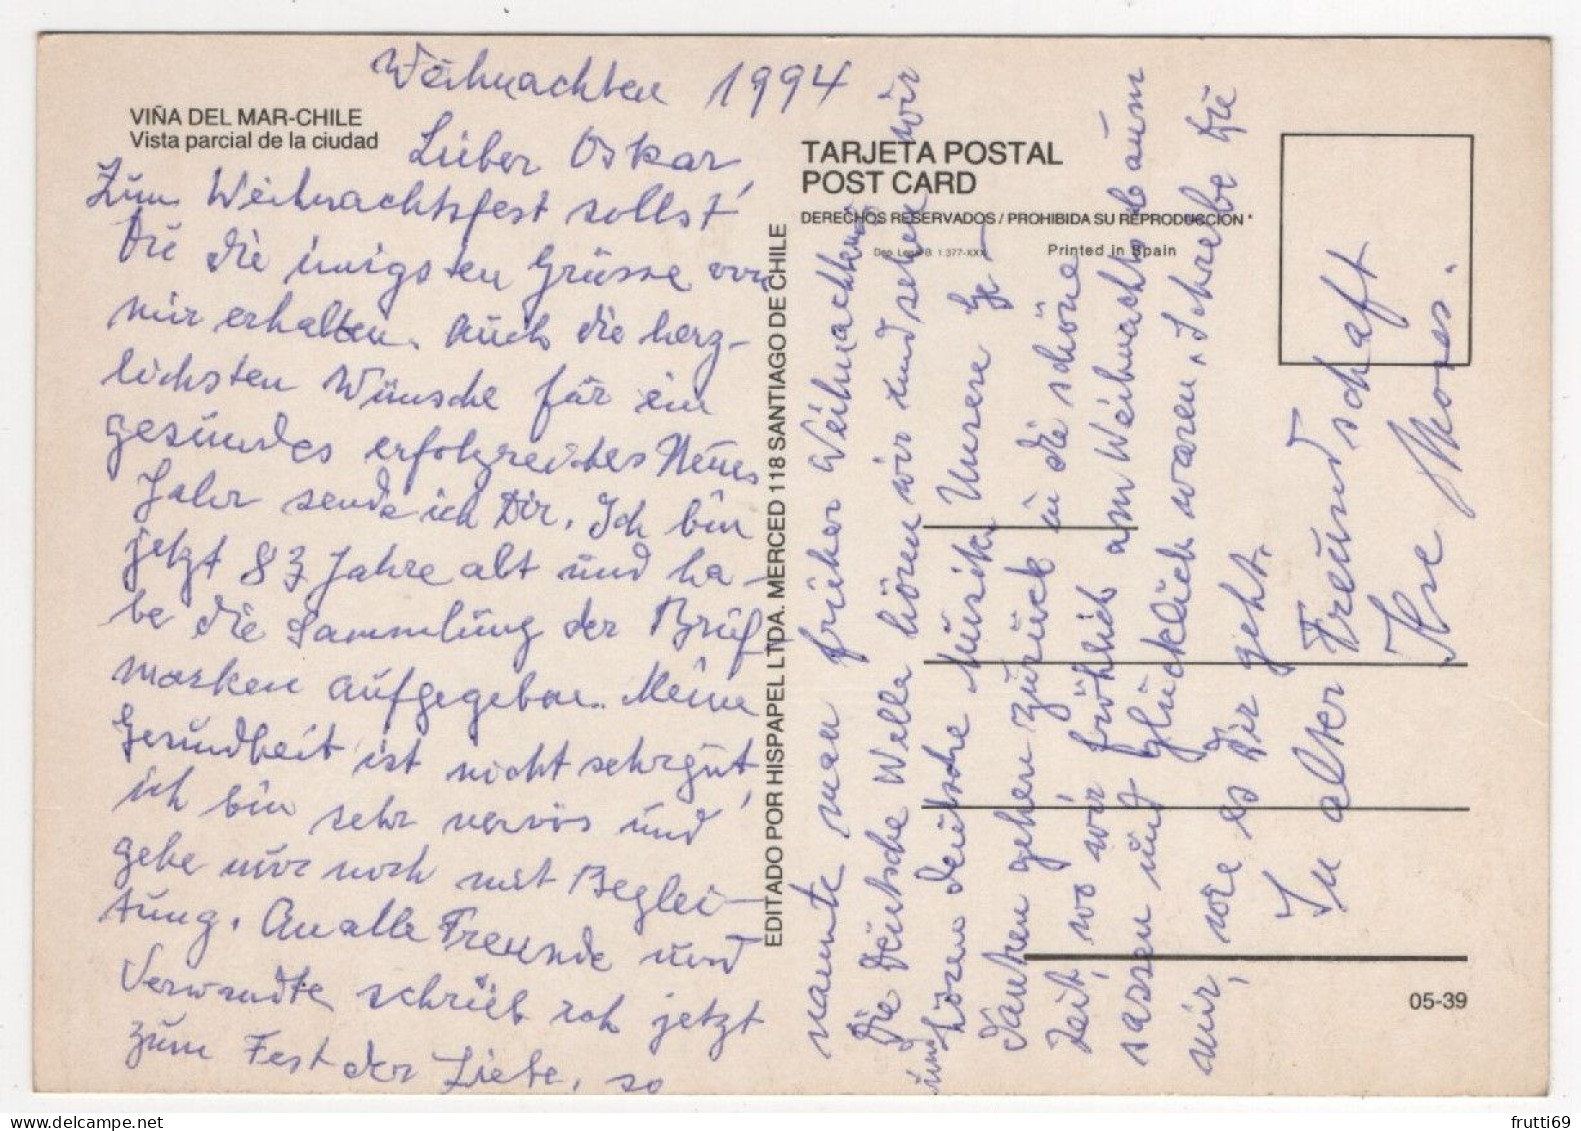 Weihnachten 1994
VIÑA DEL MAR-CHILE
Vista parcial de la ciudad
Lieber Oskar,
Zum Weihnachtsfest sollst
Du die innigsten Grüsse von
mir erhalten. Auch die herz-
lichsten Wünsche für ein
gesundes erfolgreiches Neues
Jahr sende ich Dir. Ich bin
jetzt 83 Jahre alt und ha-
be die Sammlung der Brief
marken aufgegeben. Meine
Gesundheit ist nicht sehr gut,
ich bin sehr nervös und
gehe nur noch mit Beglei-
tung. An alle Freunde und
Verwandte schrieb ich jetzt
zum Fest der Liebe, so
EDITADO POR HISPAPEL LTDA. MERCED 118 SANTIAGO DE CHILE
TARJETA POSTAL
POST CARD
DERECHOS RESERVADOS / PROHIBIDA SU REPRODUCCION
Dep. Legal B 1.377-XXX
Printed in Spain
nannte man früher Weihnachten.
Die Deutsche Welle hören wir und sehen wir
und hören deutsche Musik. Unsere Ge-
danken gehen zurück in die schöne
Zeit, wo wir fröhlich am Weihnachtsbaum
sassen und glücklich waren. Schreibe Du
mir, wie es Dir geht.
In alter Freundschaft
Ilse
05-39
frutti69